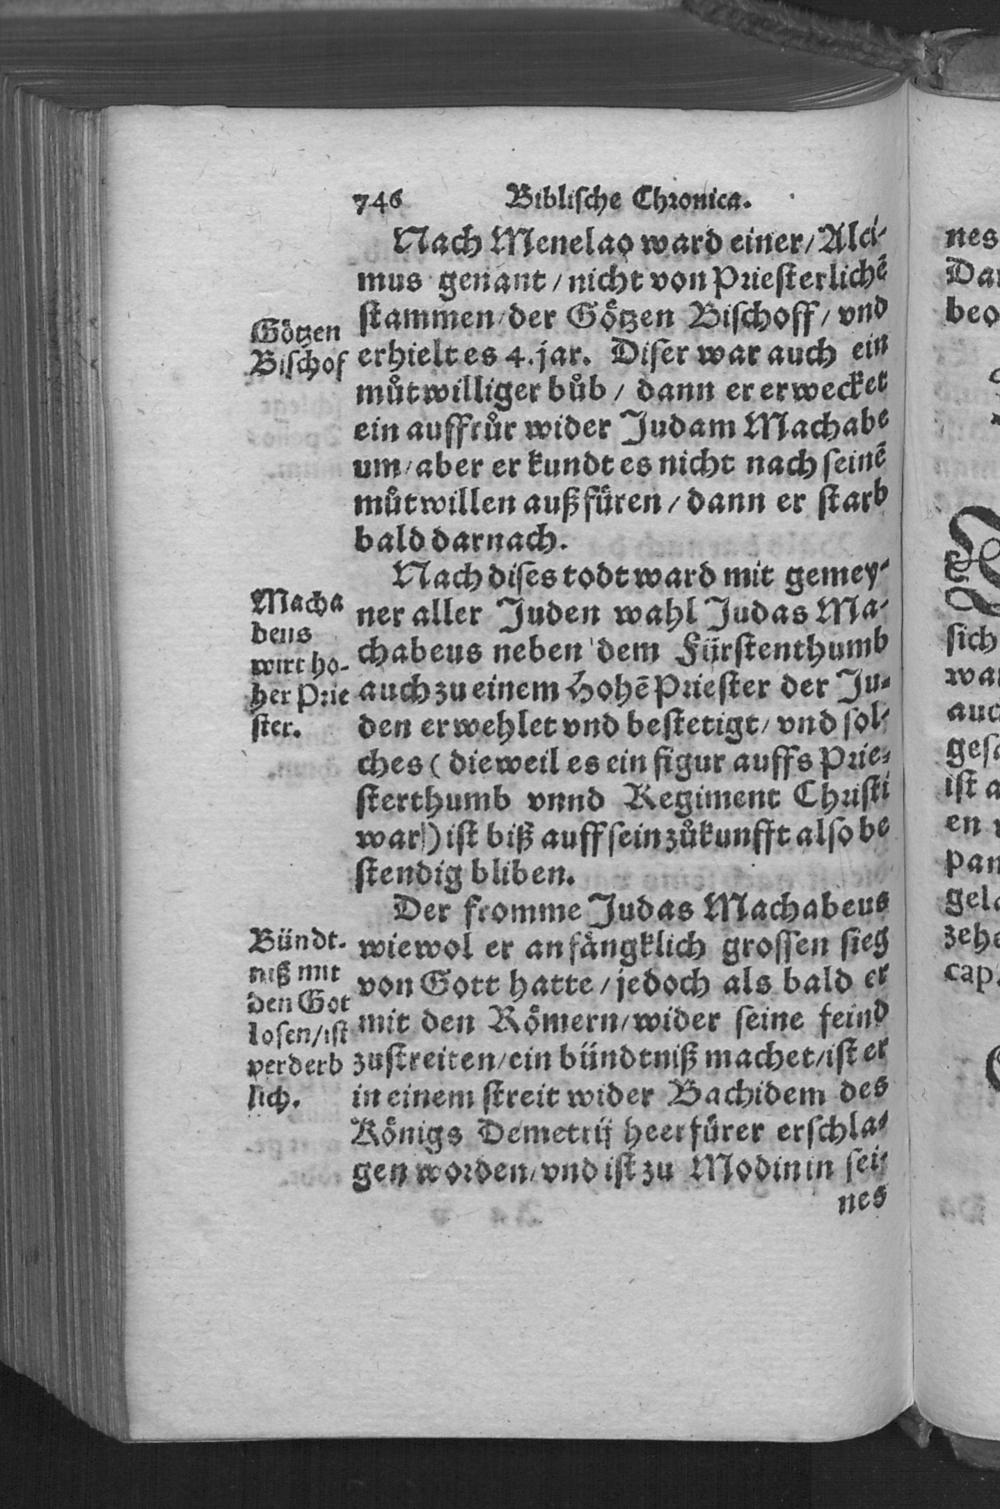 746 Biblische Chronica.
Nach Menelao ward einer / Alci⸗
mus genant / nicht von Priesterlichẽ
stammen / der Götzen Bischoff / vnd
erhielt es 4. jar. Diser war auch ein
můtwilliger bůb / dann er erwecket
ein auffrůr wider Judam Machabe
um / aber er kundt es nicht nach seinẽ
můtwillen außfüren / dann er starb
bald darnach.
Götzen
Bischof
Nach dises todt ward mit gemey⸗
ner aller Juden wahl Judas Ma⸗
chabeus neben dem Fürstenthumb
auch zu einem Hohẽ Priester der Ju⸗
den erwehlet vnd bestetigt / vnd sol⸗
ches ( dieweil es ein figur auffs Prie⸗
sterthumb vnnd Regiment Christi
war) ist biß auff sein zůkunfft also be
stendig bliben.
Macha
beus
wirt ho⸗
her Prie
ster.
Der fromme Judas Machabeus
wiewol er anfängklich grossen sieg
von Gott hatte / jedoch als bald er
mit den Römern / wider seine feind
zustreiten / ein bündtniß machet / ist er
in einem streit wider Bachidem des
Königs Demetrij heerfürer erschla⸗
gen worden / vnd ist zu Modin in sei⸗
nes
Bündt⸗
niß mit
den Got
losen / ist
verderb
lich.
nes
beo
sich
auc
ist a
en
pan
zehe
cap.